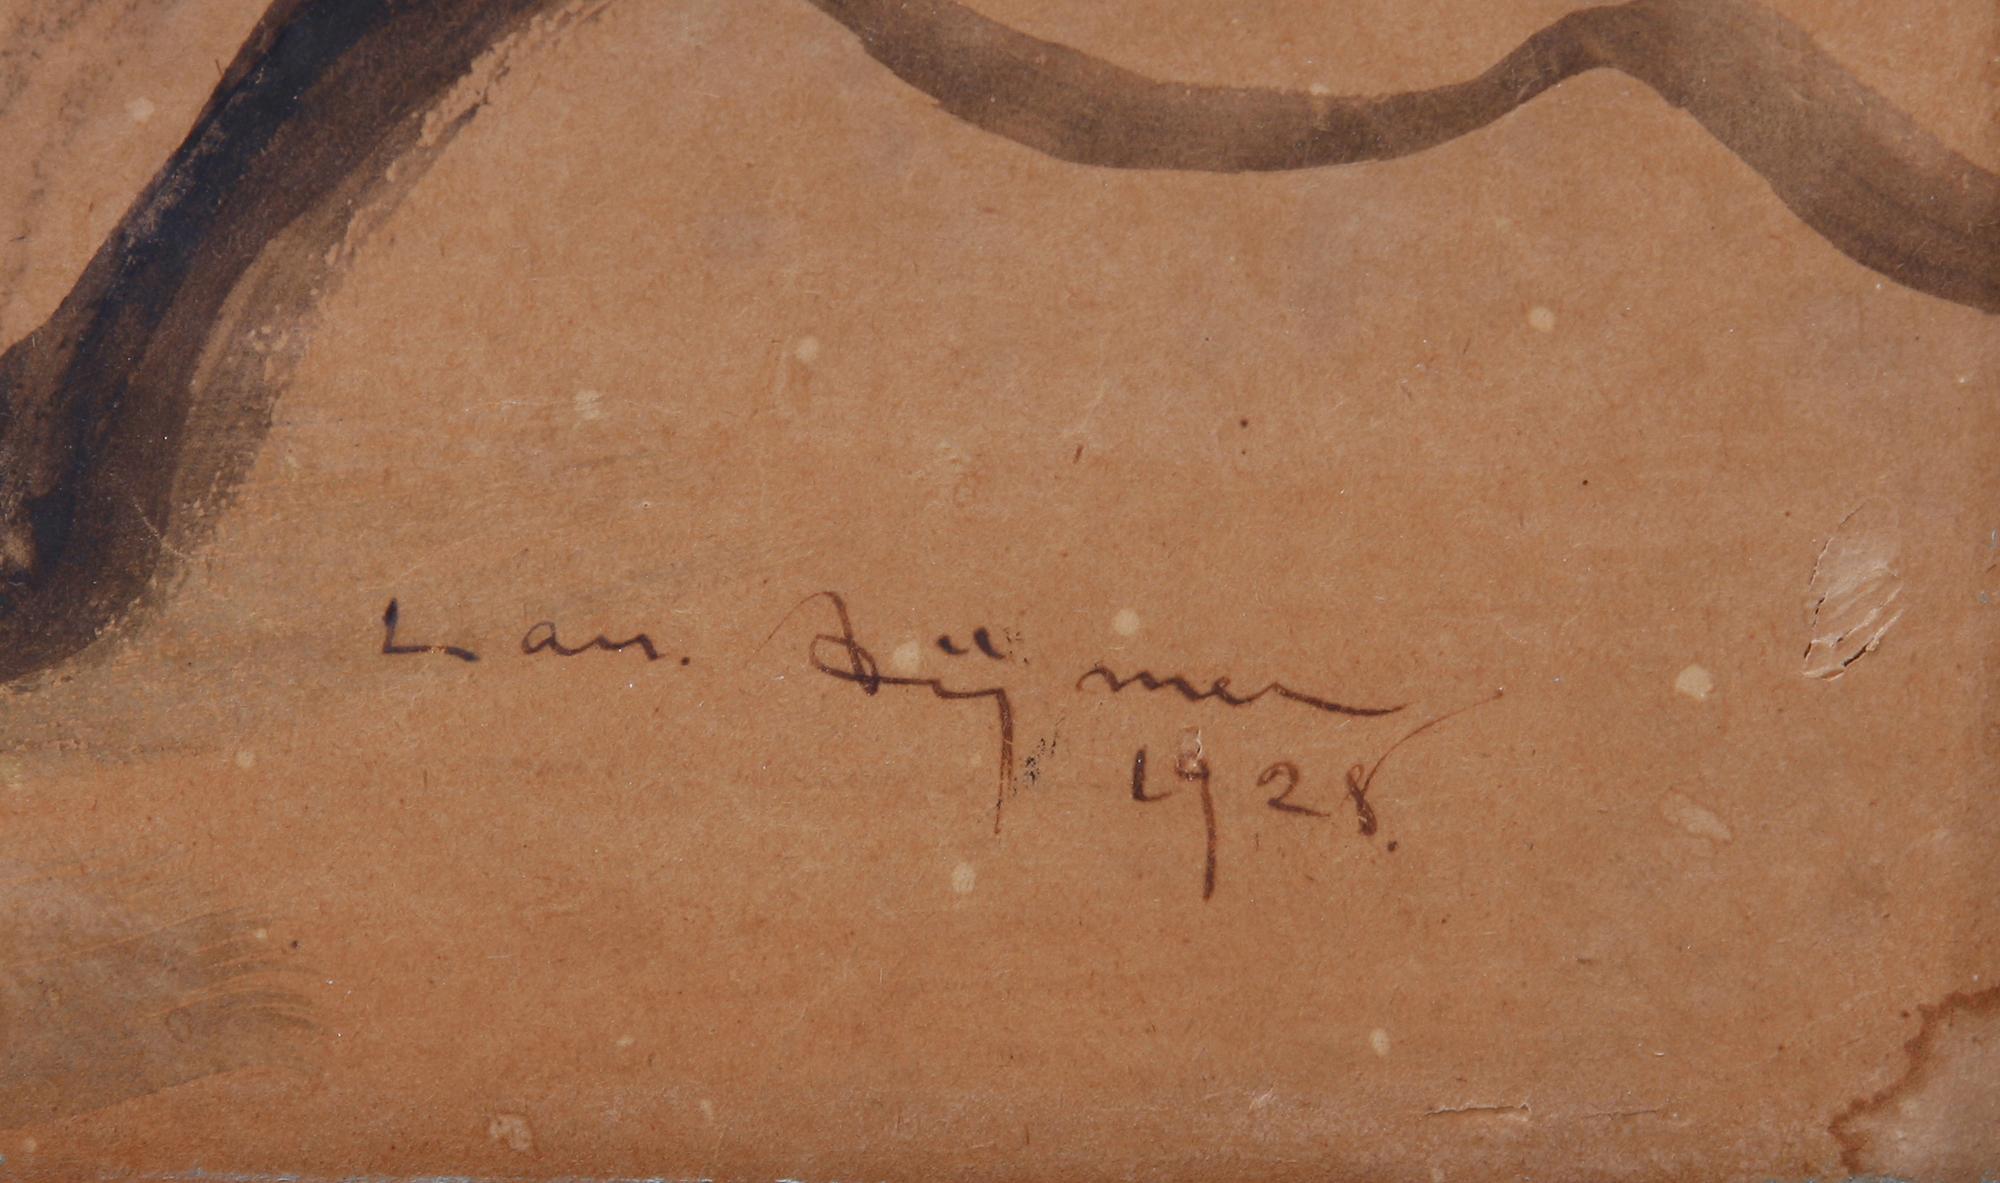 Lau. Dijmer
1928.